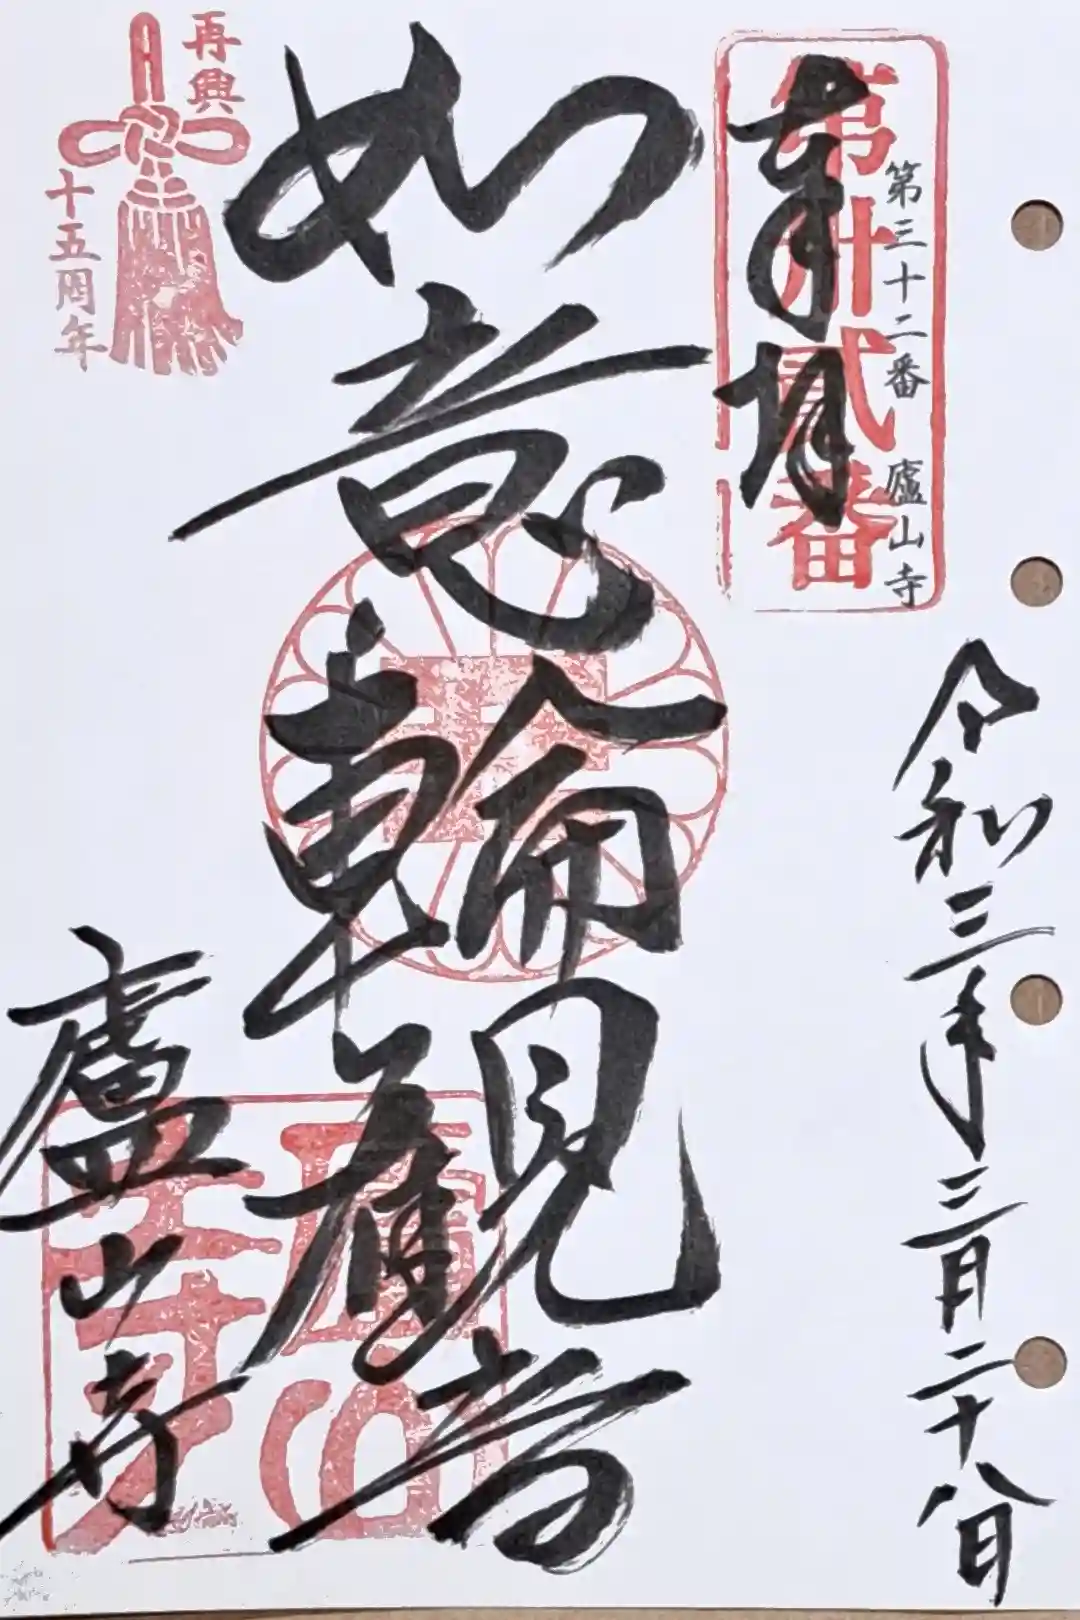 奉拝
第丗弐番
第三十二番 廬山寺
令和三年三月二十八日
如意輪観音
廬山寺
再興
十五周年
廬山寺